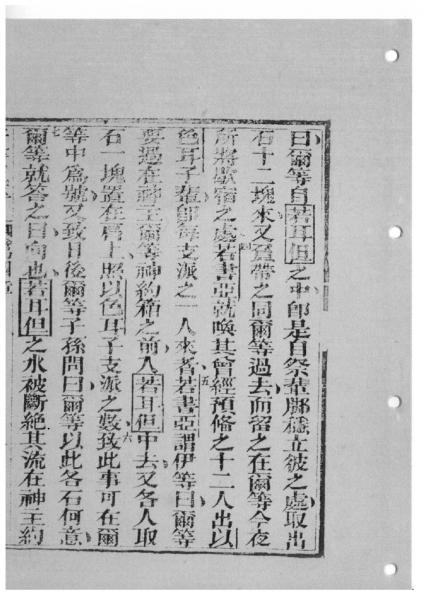 曰爾等自若耳但之中卽是自祭輩腳穩立彼之處取出
石十二塊來又宜帶之同爾等過去而留之在爾等今夜
所將歇宿之處四若書亞就喚其曾經預俻之十二人出以
色耳子輩卽每支派之一人來者五若書亞謂伊等曰爾等
要過在神主爾等神約箱之前入若耳但中去又各人取
石一塊置在肩上照以色耳子支派之數六致此事可在爾
等中爲號又致日後爾等子孫問曰爾等以此各石何意
七爾等就答之曰向也若耳但之水被斷絕其流在神主約